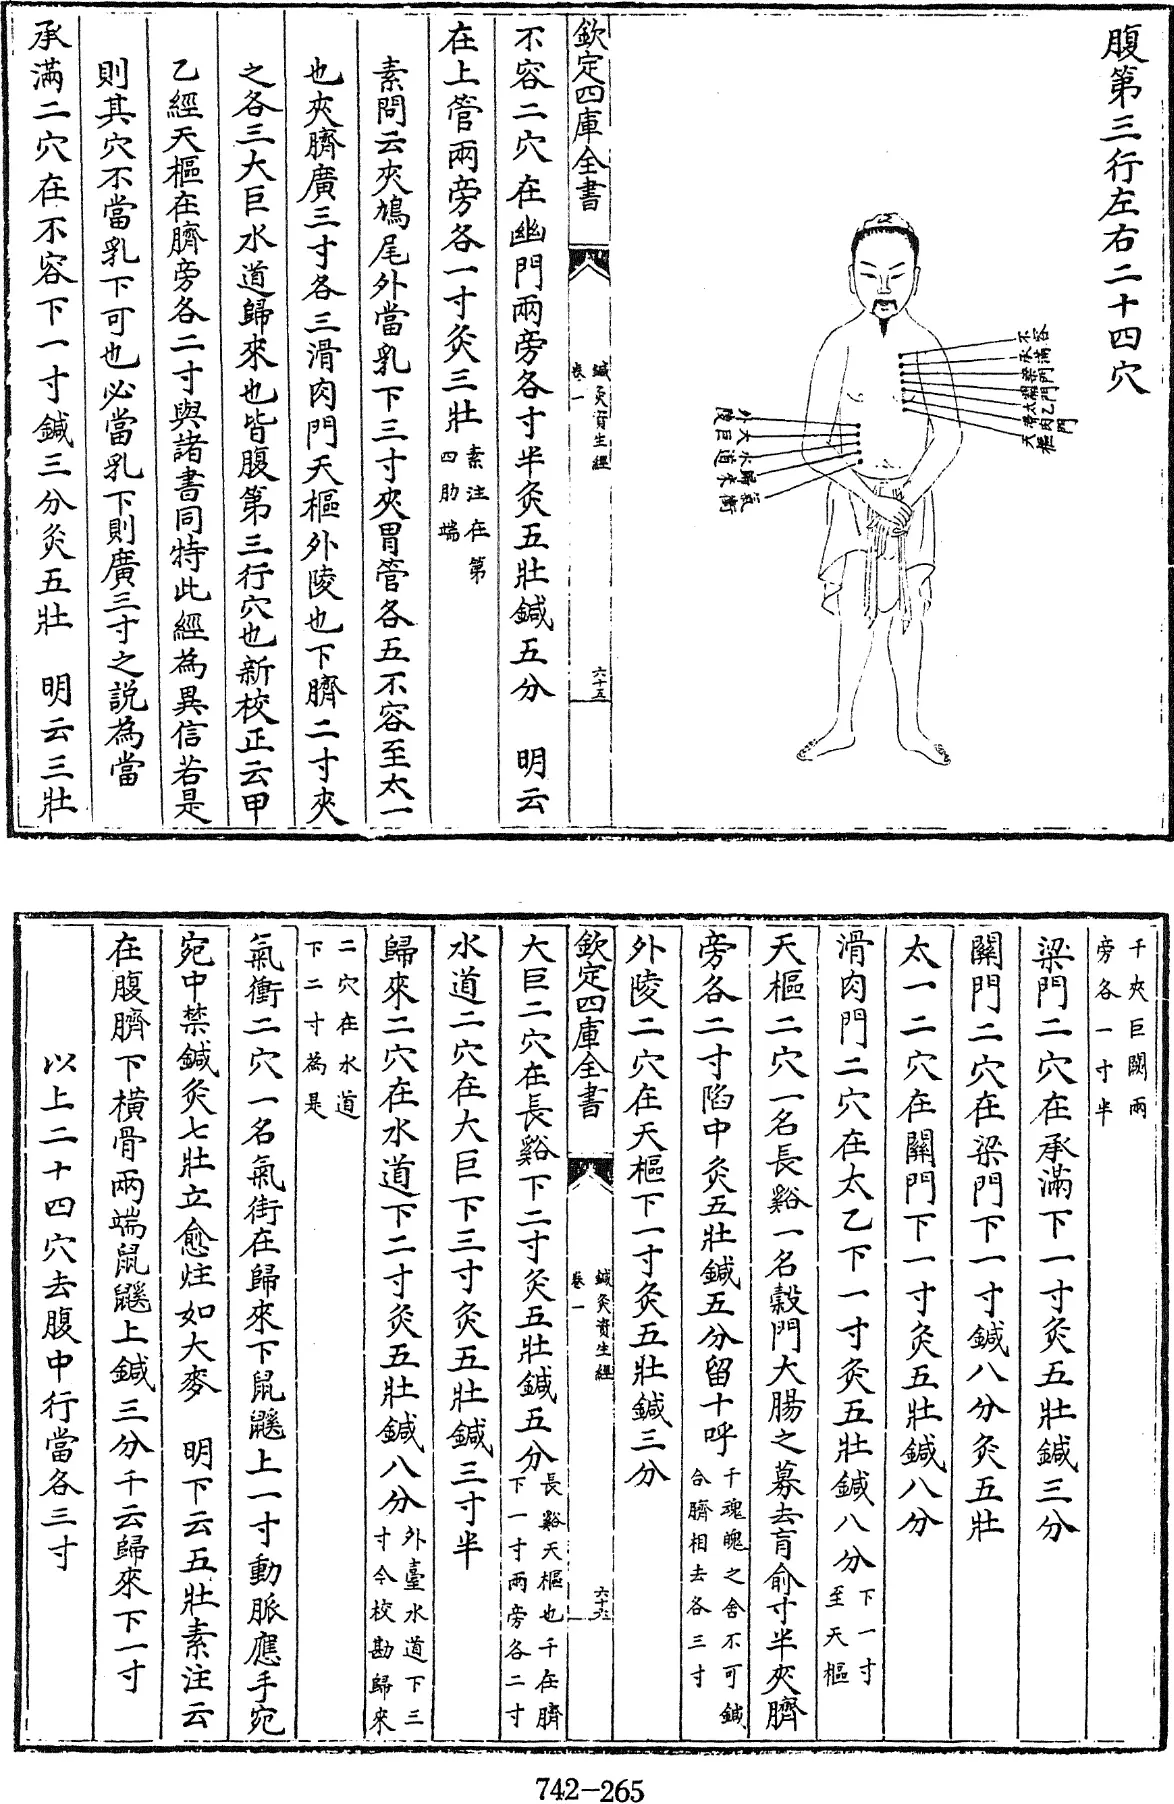 腹第三行左右二十四穴
不容
承滿
梁門
關門
太乙
滑肉門
天樞
外陵
大巨
水道
歸來
氣衝
欽定四庫全書
鍼灸資生經
卷一
六十五
不容二穴在幽門兩旁各寸半灸五壯鍼五分　明云
在上管兩旁各一寸灸三壯素注在第四肋端
素問云夾鳩尾外當乳下三寸夾胃管各五不容至太一
也夾臍廣三寸各三滑肉門天樞外陵也下臍二寸夾
之各三大巨水道歸來也皆腹第三行穴也新校正云甲
乙經天樞在臍旁各二寸與諸書同特此經為異信若是
則其穴不當乳下可也必當乳下則廣三寸之説為當
承滿二穴在不容下一寸鍼三分灸五壯　明云三壯
千夾巨闕兩旁各一寸半
梁門二穴在承滿下一寸灸五壯鍼三分
關門二穴在梁門下一寸鍼八分灸五壯
太一二穴在關門下一寸灸五壯鍼八分
滑肉門二穴在太乙下一寸灸五壯鍼八分下一寸至天樞
天樞二穴一名長谿一名穀門大腸之募去肓俞寸半夾臍
旁各二寸陷中灸五壯鍼五分留十呼千魂魄之舍不可鍼合臍相去各三寸
外陵二穴在天樞下一寸灸五壯鍼三分
欽定四庫全書
鍼灸資生經
卷一
六十六
大巨二穴在長谿下二寸灸五壯鍼五分長谿天樞也千在臍下一寸兩旁各二寸
水道二穴在大巨下三寸灸五壯鍼三寸半
歸來二穴在水道下二寸灸五壯鍼八分外臺水道下三寸今校勘歸來
二穴在水道下二寸為是
氣衝二穴一名氣街在歸來下鼠鼷上一寸動脈應手宛
宛中禁鍼灸七壯立愈炷如大麥　明下云五壯素注云
在腹臍下橫骨兩端鼠鼷上鍼三分千云歸來下一寸
以上二十四穴去腹中行當各三寸
742-265